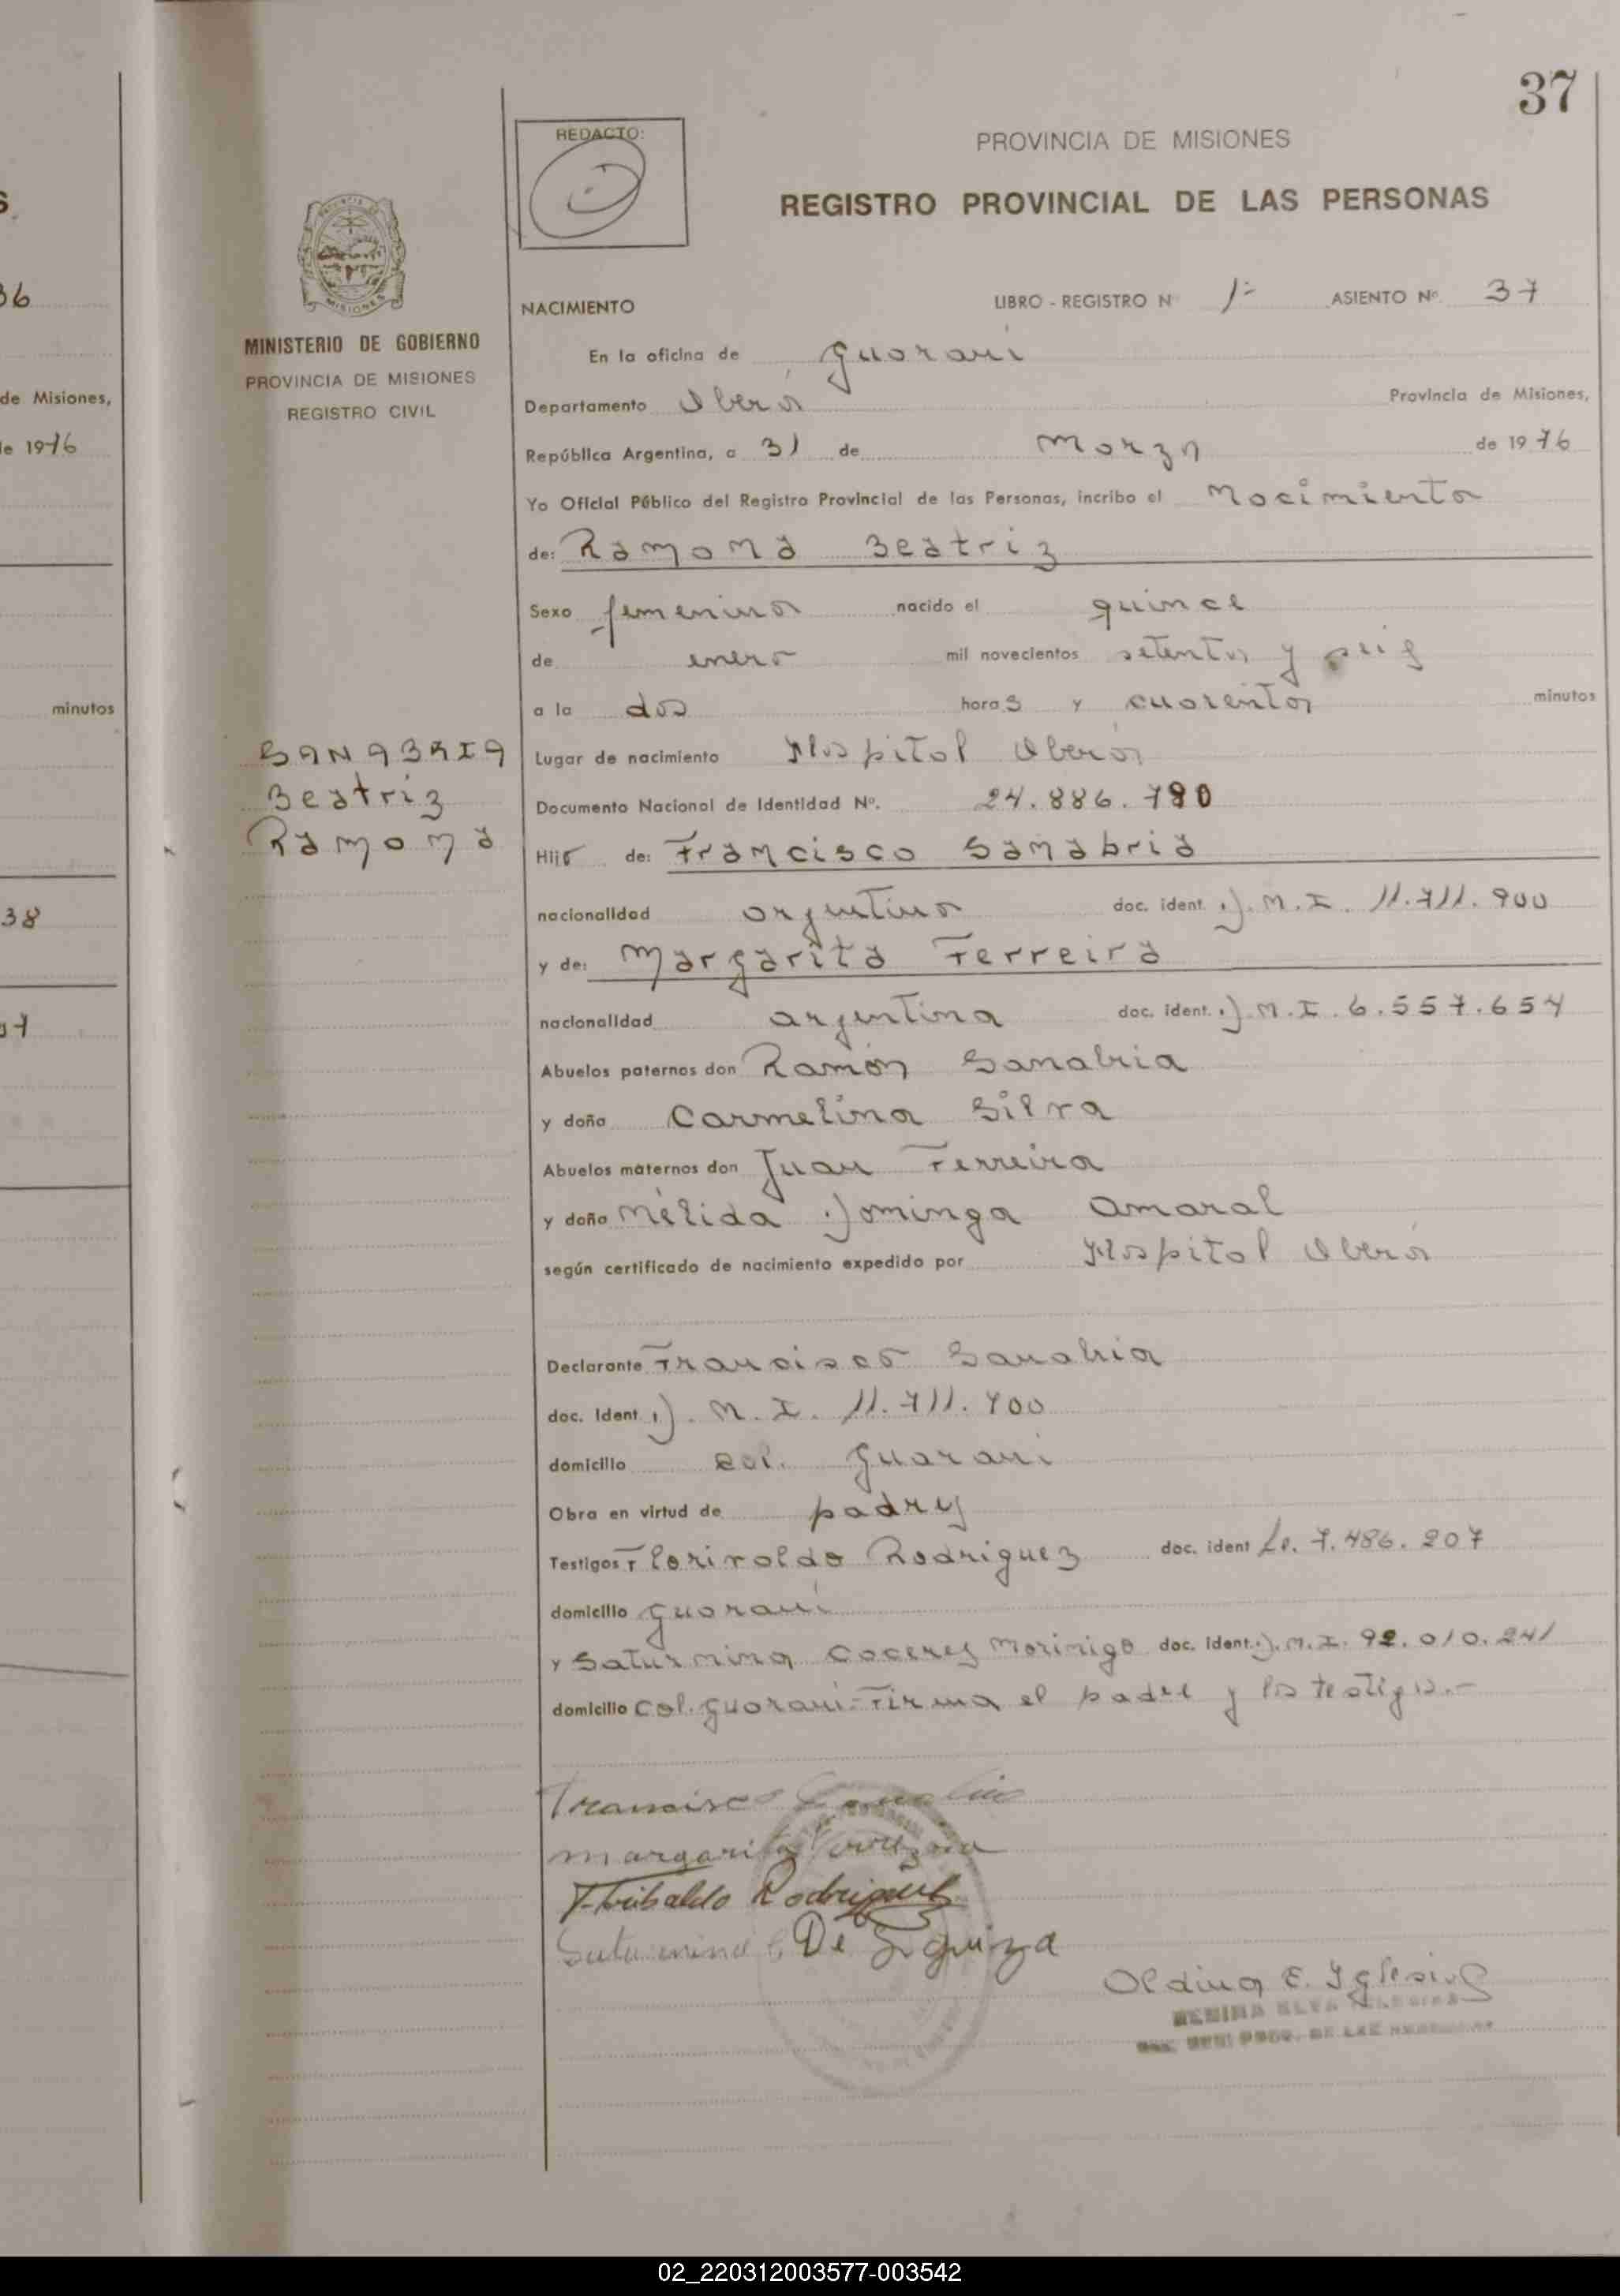 37
REDACTO:
PROVINCIA DE MISIONES
REGISTRO PROVINCIAL DE LAS PERSONAS
36
de Misiones,
de 1976
minutos
38
MISIONES
MINISTERIO DE GOBIERNO
PROVINCIA DE MISIONES
REGISTRO CIVIL
SANABRIA
Beatriz
Ramona
NACIMIENTO LIBRO - REGISTRO Nº 1º ASIENTO Nº 37
En la oficina de Guaraní
Departamento Oberá Provincia de Misiones,
República Argentina, a 31 de Marzo de 1976
Yo Oficial Público del Registro Provincial de las Personas, incribo el Nacimiento
de: Ramona Beatriz
Sexo femenino nacido el quince
de enero mil novecientos setenta y seis
a la dos horas y cuarenta minutos
Lugar de nacimiento Hospital Oberá
Documento Nacional de Identidad Nº. 24.886.790
Hijo de: Francisco Sanabria
nacionalidad argentino doc. ident. D.N.I. 11.711.900
y de: Margarita Ferreira
nacionalidad argentina doc. ident. D.N.I. 6.557.654
Abuelos paternos don Ramón Sanabria
y doña Carmelina Silva
Abuelos maternos don Juan Ferreira
y doña Mélida Dominga Amaral
según certificado de nacimiento expedido por Hospital Oberá
Declarante Francisco Sanabria
doc. Ident. D.N.I. 11.711.900
domicilio Col. Guaraní
Obra en virtud de padre
Testigos Florivaldo Rodriguez doc. ident Le. 7.486.207
domicilio Guaraní
y Saturnina Coceres Morinigo doc. Ident. D.N.I. 92.010.241
domicilio Col. Guaraní-Firma el padre y los testigos.-
Francisco Sanabria
Margarita
Rodriguez
De
Oldina E. Iglesias